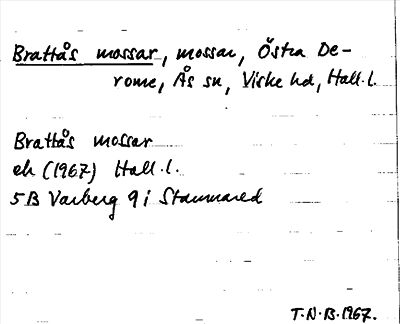 Brattås mossar, mossar, Östra De-
rome, Ås sn, Viske hd, Hall. l.
Brattås mossar
ek (1967) Hall. l.
5B Varberg 9 i Stammared
T.N.B. 1967.